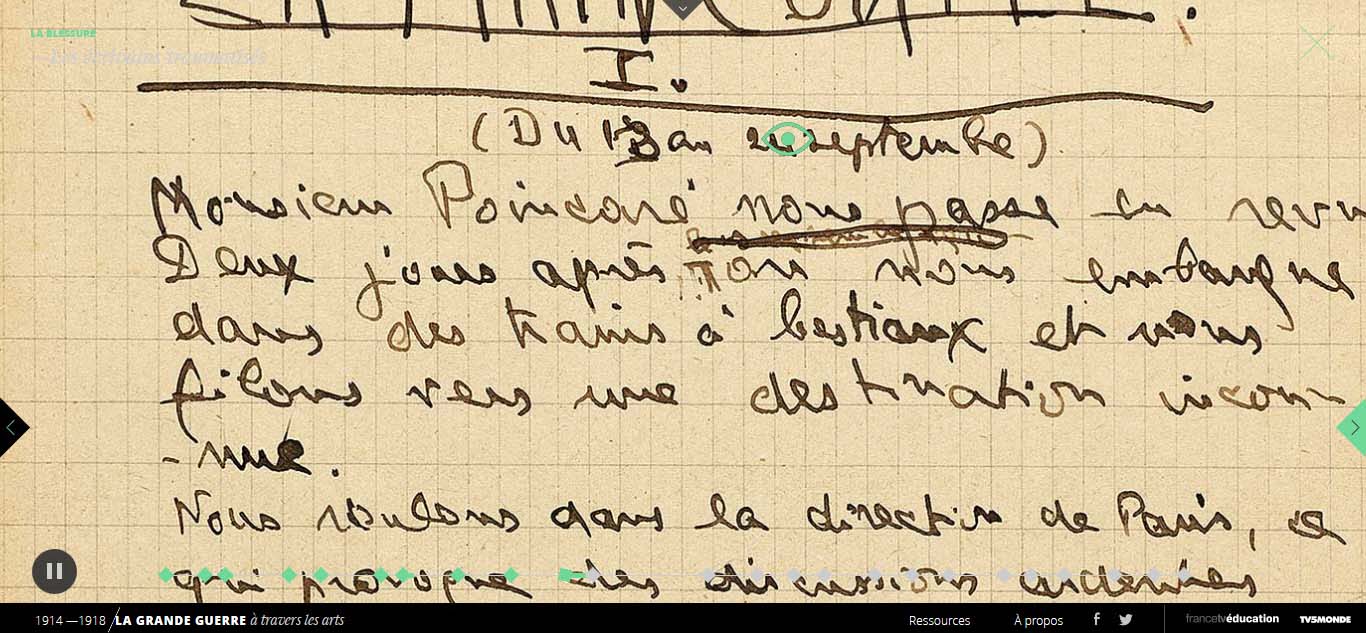 LA BLESSURE
—Les écrivains traumatisés
I.
(Du 13 au septembre)
Monsieur Poincaré nous passe en revu
Deux jours après on nous embarque
dans des trains à bestiaux et nous
filons vers une destination incon-
-nue.
Nous roulons dans la direction de Paris, ce
qui provoque des discussions ardentes
1914 —1918 / LA GRANDE GUERRE à travers les arts
Ressources
À propos
francetvéducation
TV5MONDE